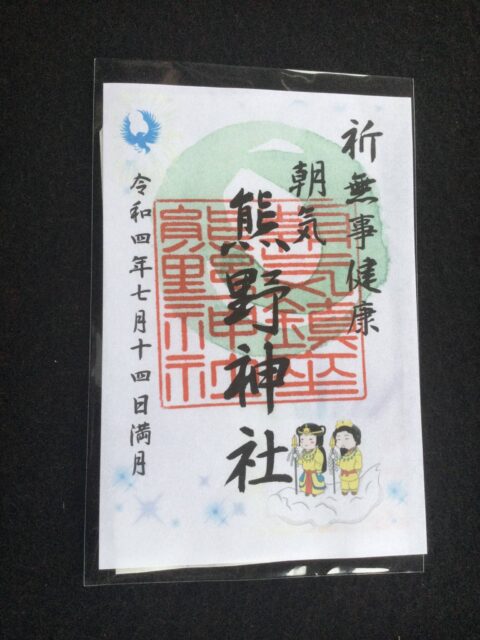 祈無事健康
朝気
熊野神社
令和四年七月十四日満月